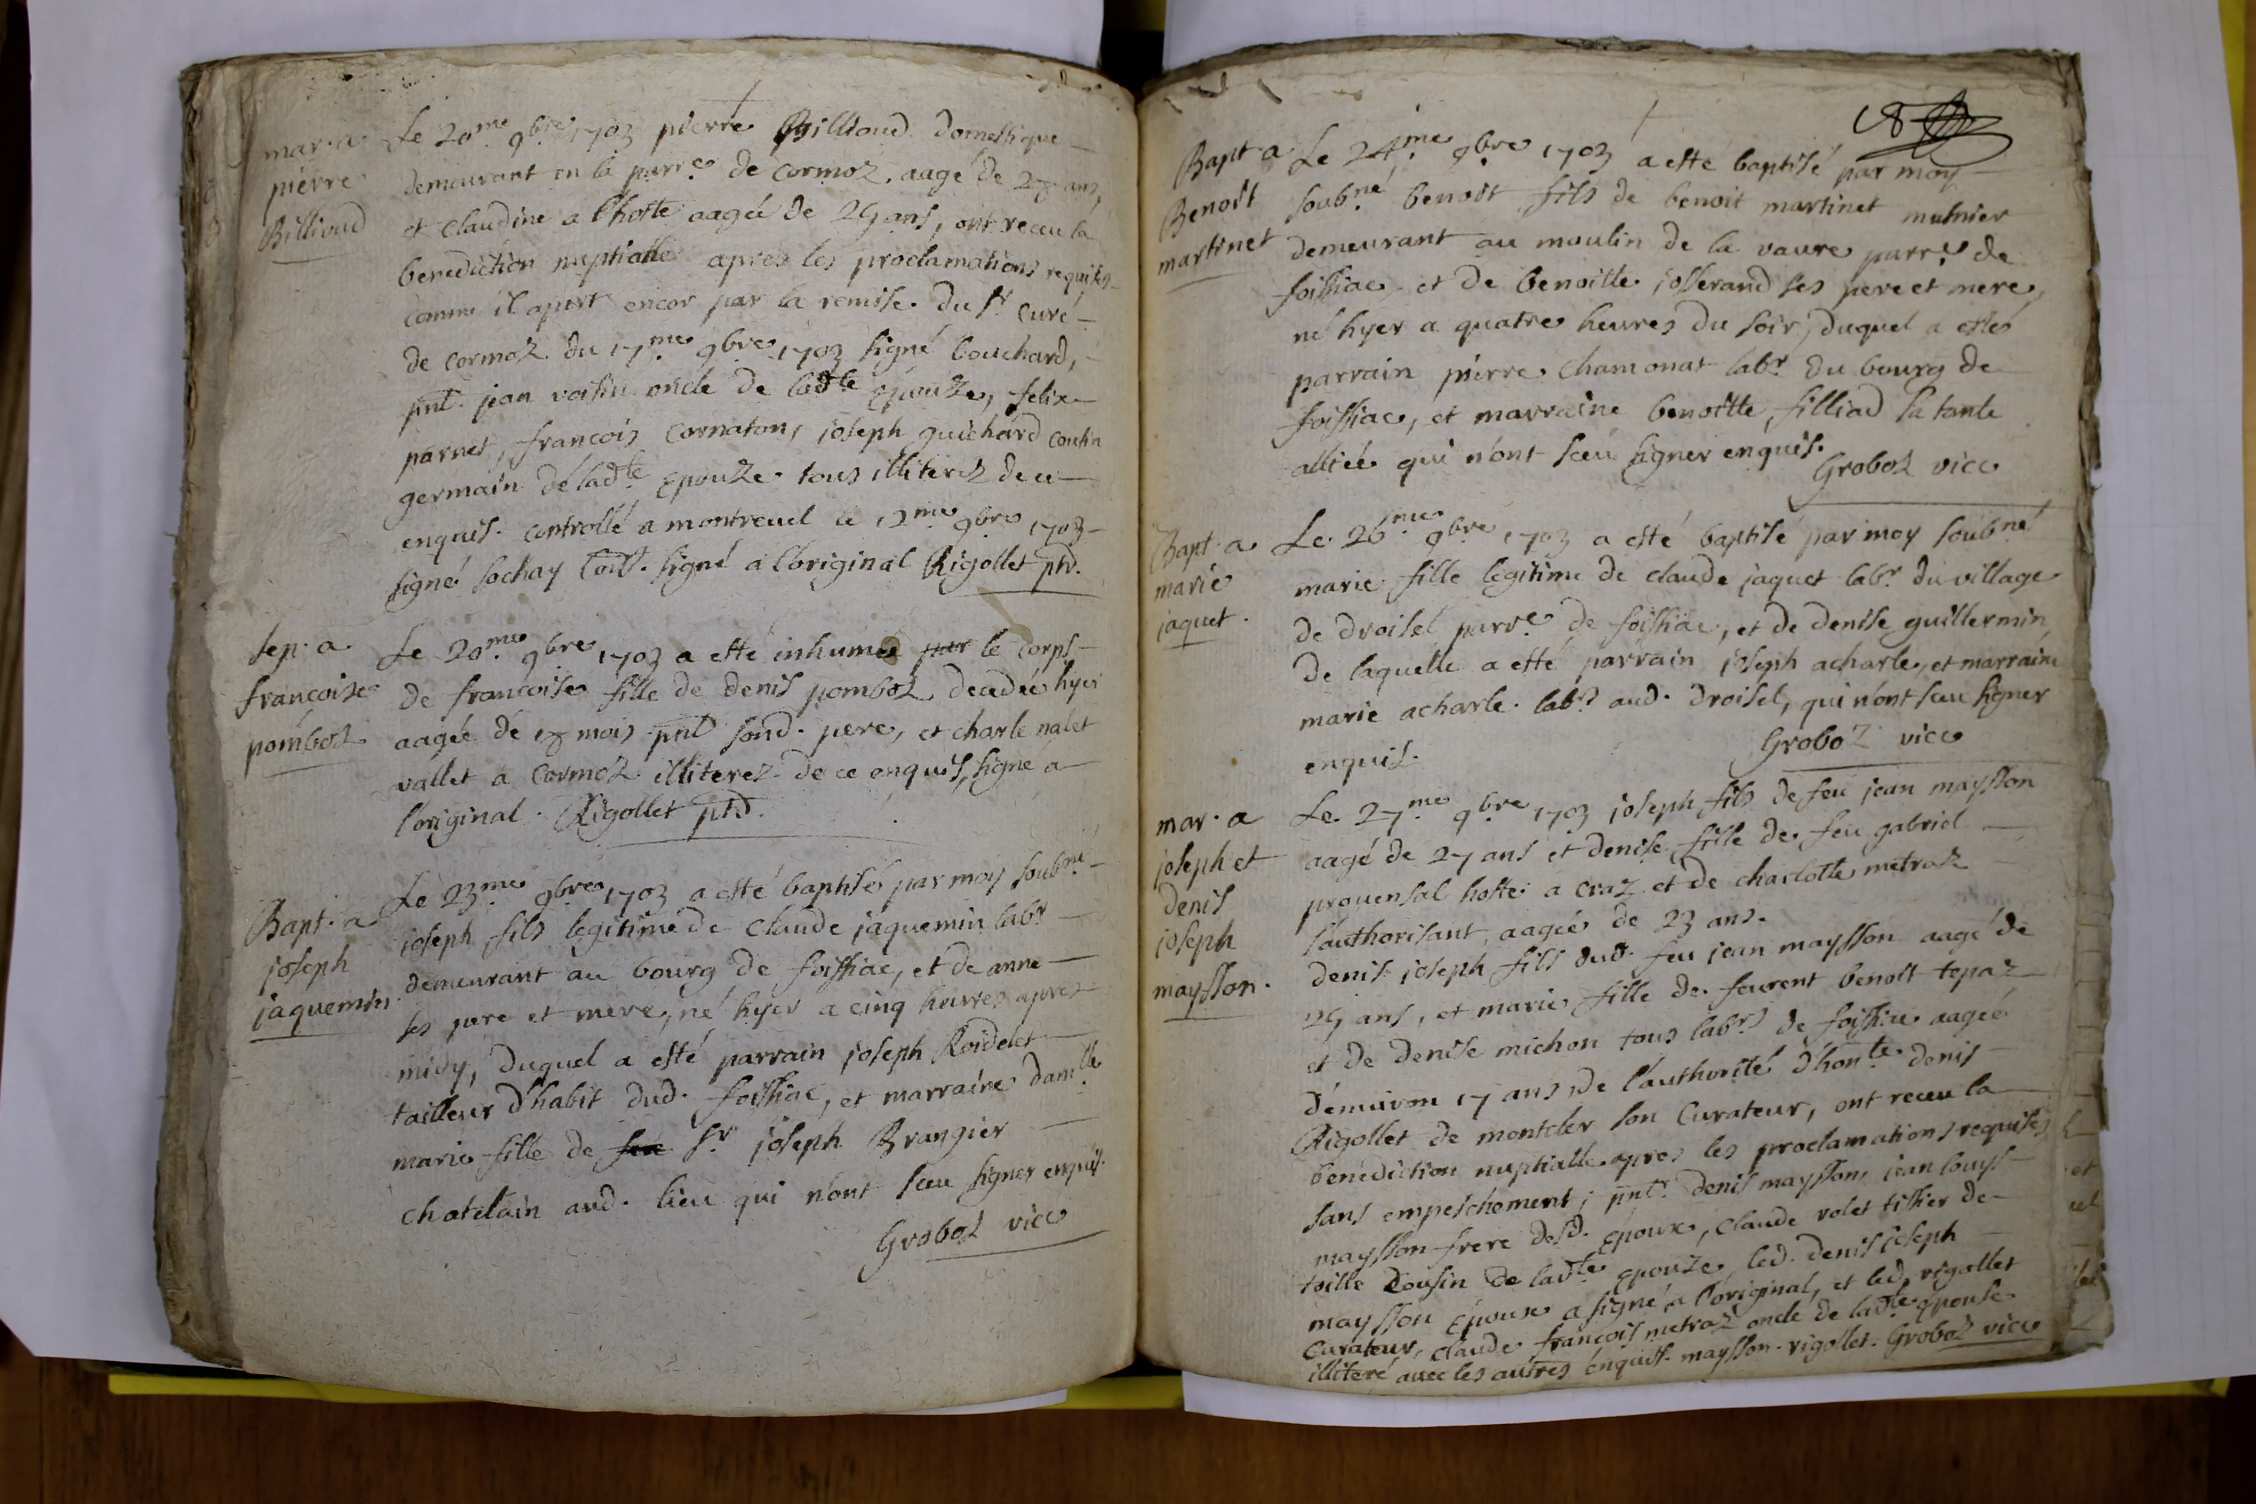 mar. a
pierre
Billioud
Le 20me 9bre 1703 pierre Billioud domestique
demeurant en la parre de Cormoz, aagé de 28 ans,
et Claudine a l'hoste aagée de 25 ans, ont receu la
benediction nuptialle apres les proclamations requises
comme il apert encor par la remise du sr curé
de cormoz du 17me 9bre 1703 signé bouchard,
pnt. jean voisin oncle de ladte Epouze, felix
parnet, francois Cornaton, joseph guichard cousin
germain de ladte Epouze tous illiterez de ce
enquis. controllé a montreuel le 12me 9bre 1703
signé sochay Coll. signé a l'original Rigollet ptd.
sep. a
francoise
pomboz
Le 20me 9bre 1703 a esté inhumée par le corps
de francoise fille de denis pomboz decedée hyer
aagée de 18 mois pnt sond. pere, et charle nalet
vallet a Cormoz illiterez de ce enquis, signé a
l'original. Rigollet ptd.
Bapt. a
joseph
jaquemin
Le 23me 9bre 1703 a esté baptisé par moy soubné
joseph fils legitime de Claude jaquemin labr
demeurant au bourg de foissiac, et de anne
ses pere et mere, né hyer a cinq heures apres
midy, duquel a esté parrain joseph Roidelet
tailleur d'habit dud. foissiac, et marraine damlle
marie fille de feu sr joseph Brangier
chatelain aud. lieu qui n'ont sceu signer enquis.
Groboz vice
18
Bapt. a
Benoit
martinet
Le 24me 9bre 1703 a esté baptisé par moy
soubné benoit fils de benoit martinet mulnier
demeurant au moulin de la vaure parre de
foissiac, et de benoitte josserand ses pere et mere,
né hyer a quatre heures du soir, duquel a esté
parrain pierre Chamonat labr du bourg de
foissiac, et marraine benoitte filliad sa tante
alliée qui n'ont sceu signer enquis.
Groboz vice
Bapt. a
marie
jaquet.
Le 26me 9bre 1703 a esté baptisé par moy soubné
marie fille legitime de claude jaquet labr du village
de droisel parre de foissiac, et de denise guillermin,
de laquelle a esté parrain joseph acharle, et marraine
marie acharle. labrs aud. droisel, qui n'ont sceu signer
enquis.
Groboz vice
mar. a
joseph et
denis
joseph
maysson.
Le 27me 9bre 1703 joseph fils de feu jean maysson
aagé de 27 ans et denise fille de feu gabriel
prouensal hoste a craz et de charlotte metraz
l'authorisant, aagée de 23 ans.
denis joseph fils dud. feu jean maysson aagé de
25 ans, et marie fille de feurent benoit tepaz
et de denise michon tous labrs de foissiac aagée
d'enuiron 17 ans de l'authorité d'honte denis
Rigollet de montcler son Curateur, ont receu la
benediction nuptialle apres les proclamations requises
sans empeschement; pnts. denis maysson, jean louys
maysson frere desd. Epoux, claude volet tissier de
toille Cousin de ladte epouze, led. denis joseph
maysson Epoux a signé a l'original, et led. rigollet
Curateur, claude francois metraz oncle de ladte epouse
illiteré auec les autres enquis. maysson. rigollet. Groboz vice